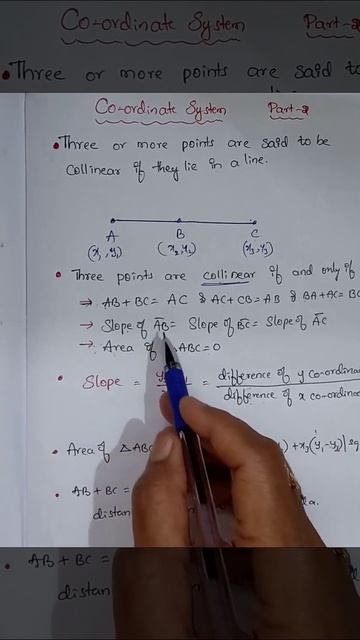 Co-ordinate System Part-2
• Three or more points are said to
Co-ordinate System Part-2
• Three or more points are said to be
collinear if they lie in a line.
A B C
(x₁, y₁) (x₂, y₂) (x₃, y₃)
• Three points are collinear if and only if
→ AB + BC = AC & AC + CB = AB & BA + AC = BC
→ Slope of AB = Slope of BC = Slope of AC
→ Area of ABC = 0
• Slope = = difference of y co-ordina
difference of x co-ordina
• Area of △ABC ) + x₃(y₁-y₂)| sq
• AB + BC =
distan
• AB + BC =
distan